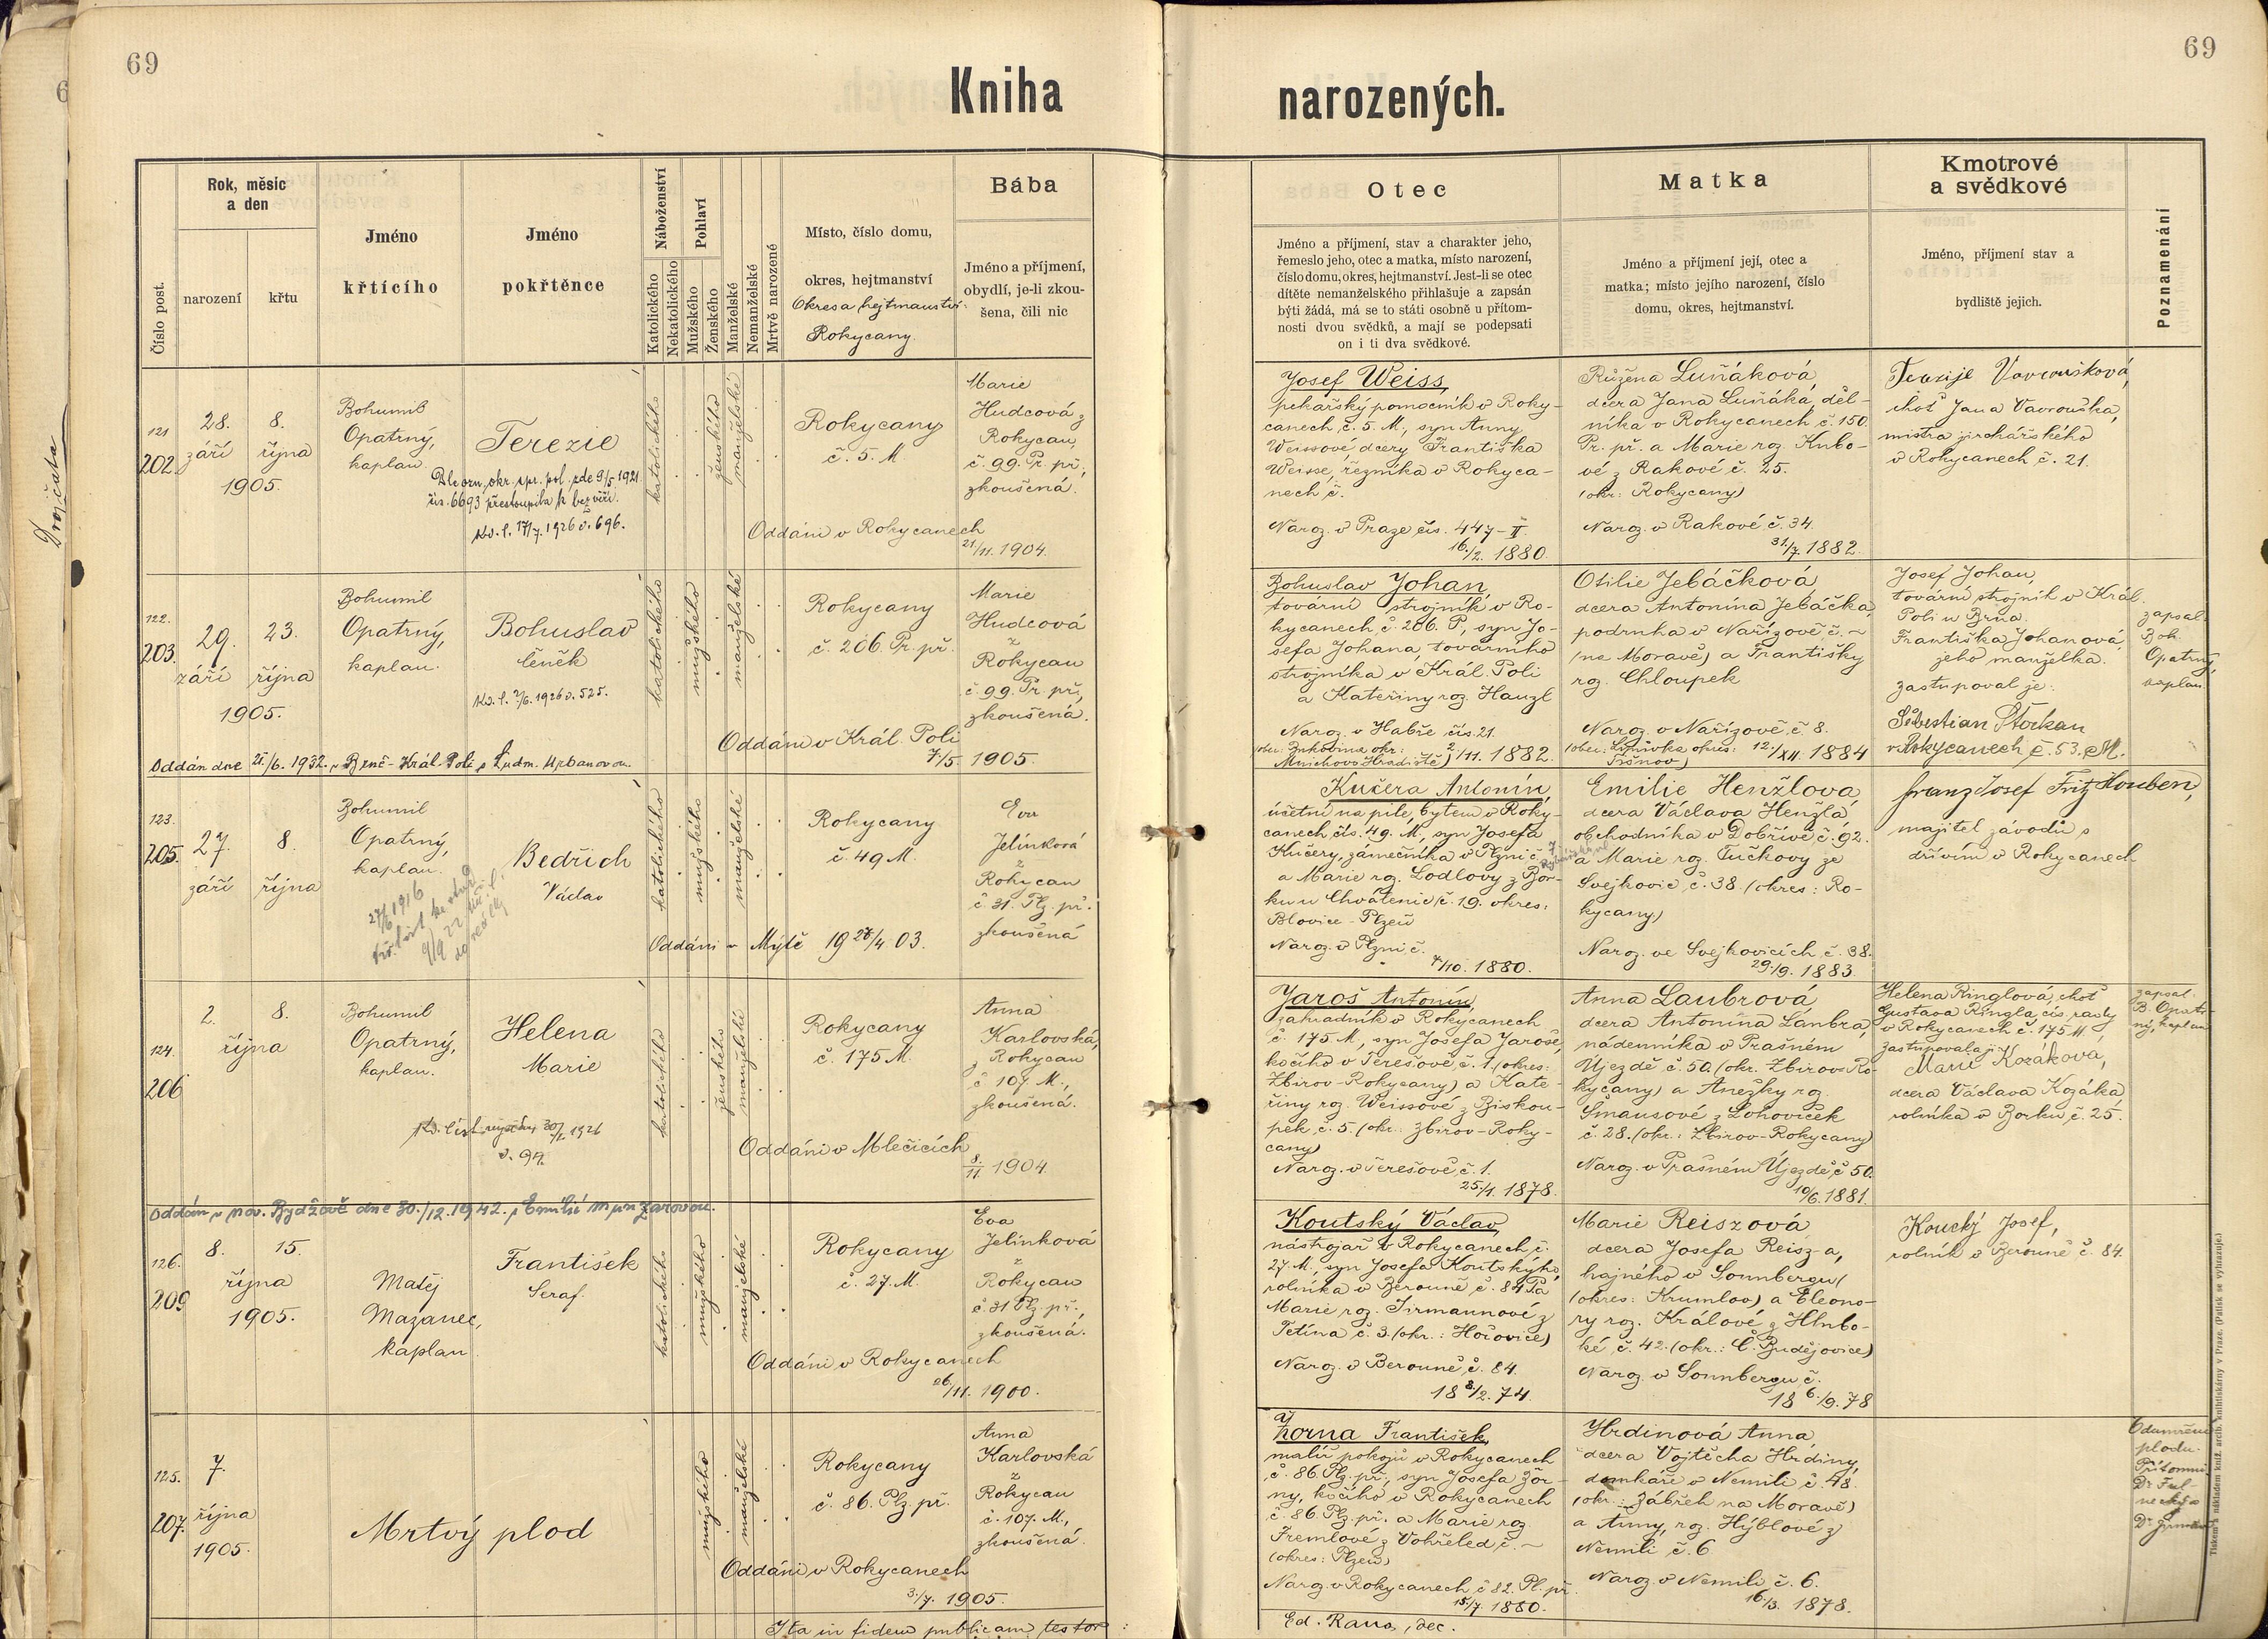 69
69
Kniha
narozených.
Číslo post.
Rok, měsíc
a den
narození
křtu
Jméno
křtícího
Jméno
pokřtěnce
Náboženství
Katolického
Nekatolického
Pohlaví
Mužského
Ženského
Manželské
Nemanželské
Mrtvě narozené
Místo, číslo domu,
okres, hejtmanství
Okres a hejtmanství:
Rokycany
Bába
Jméno a příjmení,
obydlí, je-li zkou-
šena, čili nic
Otec
Jméno a příjmení, stav a charakter jeho,
řemeslo jeho, otec a matka, místo narození,
číslo domu, okres, hejtmanství. Jest-li se otec
dítěte nemanželského přihlašuje a zapsán
býti žádá, má se to státi osobně u přítom-
nosti dvou svědků, a mají se podepsati
on i ti dva svědkové.
Matka
Jméno a příjmení její, otec a
matka; místo jejího narození, číslo
domu, okres, hejtmanství.
Kmotrové
a svědkové
Jméno, příjmení stav a
bydliště jejich.
Poznamenání
Dvojčata
121
202.
28. 8.
září října
1905.
Bohumil
Opatrný,
kaplan.
Terezie
Dle ozn. okr. spr. pol. zde 9/5 1921
čís. 6693 přestoupila k bezvěří.
Kř. l. 17/7. 1926 č. 696.
katolického
ženského
manželské
Rokycany
č. 5. M
Marie
Hudcová z
Rokycan,
č. 99. Pr. př.,
zkoušená.
Oddáni v Rokycanech
21/11. 1904.
Josef Weiss,
pekařský pomocník v Roky-
canech, č. 5. M., syn Anny
Weissové dcery Františka
Weisse, řezníka v Rokyca-
nech č.
Naroz. v Praze čís. 447-II
16./2. 1880.
Růžena Luňáková,
dcera Jana Luňáka, děl-
níka v Rokycanech č. 150.
Pr. př. a Marie roz. Kubo-
vé z Rakové č. 25.
(okr: Rokycany)
Naroz. v Rakové č. 34.
31./7. 1882.
Terezije Vavroušková,
choť Jana Vavrouška,
mistra jirchářského
v Rokycanech č. 21.
122.
203.
29. 23.
září října
1905.
Bohumil
Opatrný,
kaplan.
Bohuslav
Čeněk
Kř. l. 2/6. 1926 č. 525.
katolického
mužského
manželské
Rokycany
č. 206. Pr. př.
Marie
Hudcová
z
Rokycan
č. 99. Pr. př.,
zkoušená.
Oddáni v Král. Poli
7/5. 1905.
Oddán dne 25/6. 1932. v Brně-Král. Poli s Ludm. Urbanovou.
Bohuslav Johan,
tovární strojník v Ro-
kycanech, č. 206. P., syn Jo-
sefa Johana, továrního
strojníka v Král. Poli
a Kateřiny roz. Hanzl
Naroz. v Habře čís. 21.
Mnichovo Hradiště) 2./11. 1882.
Otilie Jebáčková,
dcera Antonína Jebáčka,
podruha v Nařízově č. ~
(na Moravě) a Františky
roz. Chloupek
Naroz. v Nařízově č. 8.
(obec: Lipůvka okres: 12./XII. 1884
Tišnov)
Josef Johan,
tovární strojník v Král.
Poli u Brna.
Františka Johanová,
jeho manželka.
zastupoval je:
Šebestian Štockan
v Rokycanech č. 53. M.
zapsal
Boh.
Opatrný,
kaplan.
123.
205.
27. 8.
září října
Bohumil
Opatrný,
kaplan.
Bedřich
Václav
27/6 1916
katolického
mužského
manželské
Rokycany
č. 49 M.
Eva
Jelínková
z
Rokycan
č. 31. Plz. př.
zkoušená
Oddáni v Mýtě 19 28/4 03.
Kučera Antonín,
účetní na pile, bytem v Roky-
canech čís. 49. M., syn Josefa
Kučery, zámečníka v Plzni č. 7
a Marie roz. Lodlovy z Bor-
ku u Chválenic (č. 19. okres:
Blovice-Plzeň
Naroz. v Plzni č.
7/10. 1880.
Emilie Henžlova,
dcera Václava Henžla,
obchodníka v Dobřívě č. 92.
a Marie roz. Tučkovy ze
Svejkovic, č. 38. (okres: Ro-
kycany)
Naroz. ve Svejkovicích č. 38.
29./9. 1883.
Franz Josef Fritz Houben,
majitel závodu s
dřívím v Rokycanech
124.
206
2. 8.
října
Bohumil
Opatrný,
kaplan.
Helena
Marie
č. 99.
katolického
ženského
manželské
Rokycany
č. 175 M.
Anna
Karlovská,
z Rokycan
č. 107. M.,
zkoušená.
Oddáni v Mlečicích
8./11. 1904.
Jaroš Antonín,
zahradník v Rokycanech
č. 175 M., syn Josefa Jaroše,
kočího v Terešově č. 1. (okres:
Zbirov-Rokycany) a Kate-
řiny roz. Weissové z Biskou-
pek, č. 5. (okr.: Zbirov-Roky-
cany)
Naroz. v Terešově č. 1.
25./1. 1878.
Anna Laubrová
dcera Antonína Laubra,
nádenníka v Prašném
Újezdě č. 50. (okr. Zbirov-Ro-
kycany) a Anežky roz.
Šmausové z Lohoviček
č. 28. (okr.: Zbirov-Rokycany)
Naroz. v Prašném Újezdě č. 50.
10/6. 1881.
Helena Ringlová, choť
Gustava Ringla, cís. rady
v Rokycanech č. 175 M.
zastupovala ji
Marie Kozáková,
dcera Václava Kozáka,
rolníka v Borku č. 25.
zapsal
B. Opatr-
ný, kaplan
Oddán v Nov. Bydžově dne 30./12. 1942. s Emilií
126.
209
8. 15.
října
1905.
Matěj
Mazanec,
kaplan.
František
Seraf.
katolického
mužského
manželské
Rokycany
č. 27. M.
Eva
Jelínková
z
Rokycan
č. 31 Plz. př.,
zkoušená.
Oddáni v Rokycanech
26./11. 1900.
Koutský Václav,
nástrojař v Rokycanech č.
27 M., syn Josefa Koutského,
rolníka v Berouně č. 84 a
Marie roz. Tirmannové z
Tetína č. 3. (okr.: Hořovice)
Naroz. v Berouně, č. 84.
18 8/2. 74.
Marie Reiszová
dcera Josefa Reisz-a,
hajného v Sonnbergu (
(okres: Krumlov) a Eleono-
ry roz. Králové z Hlubo-
ké, č. 42. (okr.: Č. Budějovice)
Naroz. v Sonnbergu č.
18 6./9. 78
Koucký Josef,
rolník v Berouně č. 84.
125.
207.
7.
října
1905.
Mrtvý plod
mužského
manželské
Rokycany
č. 86. Plz. př.
Anna
Karlovská
z
Rokycan
č. 107. M.,
zkoušená.
Oddáni v Rokycanech
3./7. 1905.
František,
malíř pokojů v Rokycanech
č. 86. Plz. př., syn Josefa Žor-
ny, kočího v Rokycanech
č. 86. Plz. př. a Marie roz.
Fremlové z Vohřeled č. ~
(okres: Plzeň)
Naroz. v Rokycanech, č. 82. Pl. př.
15/7. 1880.
Hrdinová Anna,
dcera Vojtěcha Hrdiny,
domkáře v Nemili č. 48.
(okr.: Zábřeh na Moravě)
a Anny, roz. Hýblové z
Nemili č. 6.
Naroz. v Nemili č. 6.
16./3. 1878.
Odumření
plodu.
Přítomni
Ita in fidem publicam testor:
Ed. Rana, dec.